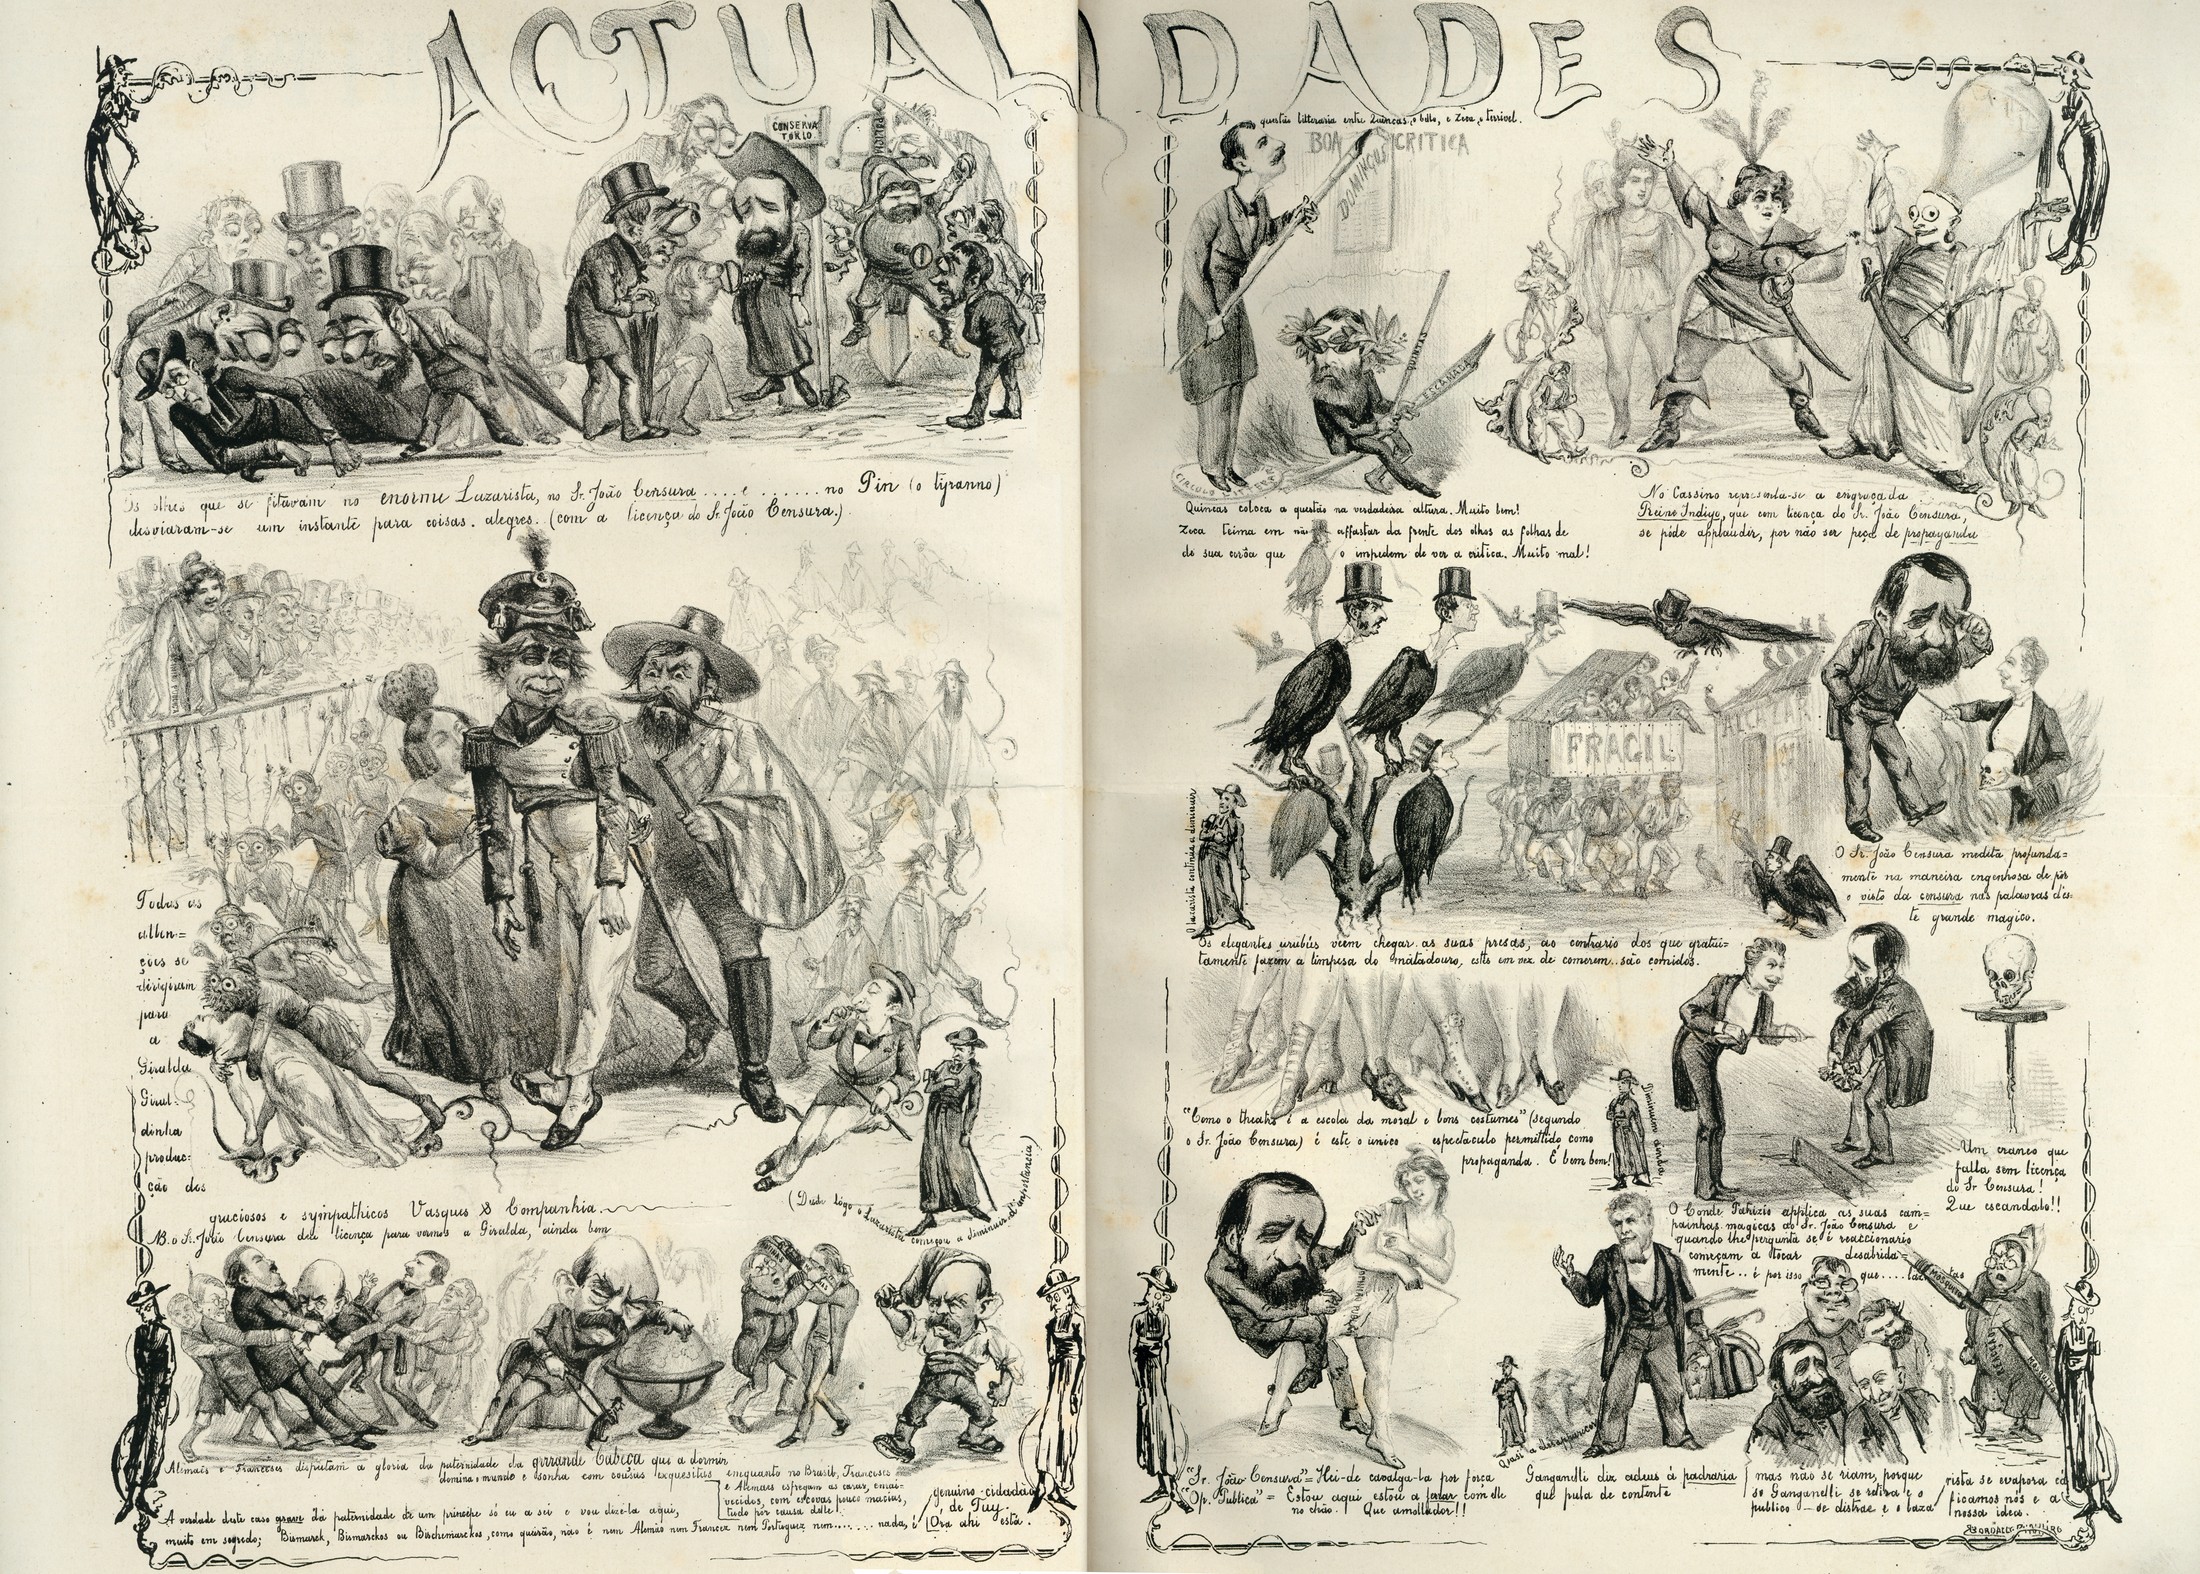 ACTUALIDADES
CONSERVA
TORIO
Os olhos que se fitavam no enorme Lazarista, no Sr. João Censura .... e ....... no Pin (o tyranno)
desviaram-se um instante para coisas alegres.. (com a licença do Sr. João Censura.)
Todas as
atten=
ções se
dirigiram
para
a
Giralda
Giral-
dinha
produc-
ção dos
graciosos e sympathicos Vasques & Companhia.
NB. o Sr. João Censura deu licença para vermos a Giralda, ainda bem
(Desde logo o Lazarista começou a diminuir d'importancia)
Alemães e Francezes disputam a gloria da paternidade da grrrande Cabeça que a dormir
domina o mundo e sonha com cousas exquesitas
enquanto no Brasil, Francezes
e Alemães esfregam as caras, enrai-
vecidos, com escovas pouco macias,
tudo por causa delle!
A verdade deste caso grave da paternidade de um principe só eu a sei e vou dizel-a aqui,
muito em segredo; Bismarck, Bismarckos ou Bischemarckos, como queirão, não é nem Alemão nem Francez nem Portuguez nem....... nada, é
genuino cidadão
de Tuy.
Ora ahi está.
A questão litteraria entre Quincas, o bello, e Zeca, o terrivel.
BOA CRITICA
DOMINGUS
QUINTAS
ESCANADA
Quincas coloca a questão na verdadeira altura. Muito bem!
Zeca teima em não affastar da frente dos olhos as folhas de
de sua corôa que o impedem de ver a critica. Muito mal!
No Cassino representa-se a engraçada
Reino Indigo, que com licença do Sr. João Censura,
se póde applaudir, por não ser peça de propaganda
FRAGIL
ALCAZAR
O lazarista continúa a diminuir
Os elegantes urubús veem chegar as suas presas, ao contrario dos que gratui=
tamente fazem a limpesa do matadouro, estes em vez de comerem.. são comidos.
O Sr. João Censura medita profunda=
mente na maneira engenhosa de pôr
o visto da censura nas palavras des-
te grande magico.
"Como o theatro é a escola da moral e bons costumes" (segundo
o Sr. João Censura) é este o unico espectaculo permittido como
propaganda. É bem bom!
Diminuem ainda
Um craneo que
falla sem licença
do Sr Censura!
Que escandalo!!
O Conde Patrizio applica as suas cam=
painhas magicas ao Sr. João Censura e
quando lhe pergunta se é reaccionario
começam a tocar desabrida=
mente.. é por isso que....
MOSQUITO
"Sr. João Censura" = Hei-de cavalga-la por força
"Op. Publica" = Estou aqui estou a ferrar com elle
no chão. ! Que amollador!!
Quasi a desapparecer
Ganganelli diz adeus á padraria
que pula de contente
mas não se riam, porque
se Ganganelli se retira e o
publico se distrae e o laza
rista se evapora cá
ficamos nós e a
nossa idea.
BORDALLO PINHEIRO